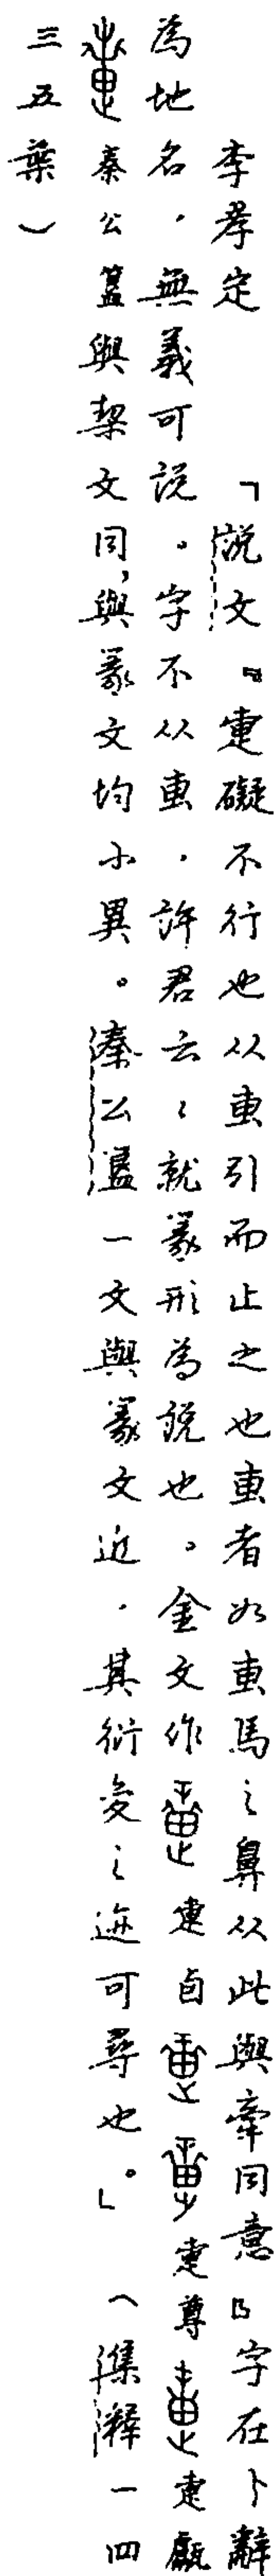 李孝定　「說文『疐礙不行也从叀引而止之也叀者如叀馬之鼻从此與牽同意』字在卜辭
為地名，無義可說。字不从叀，許君云云就篆形為說也。金文作疐卣疐尊疐甗
秦公簋與栔文同，與篆文均小異。秦公簋一文與篆文近，其衍變之迹可尋也。」（集釋一四
三五葉）